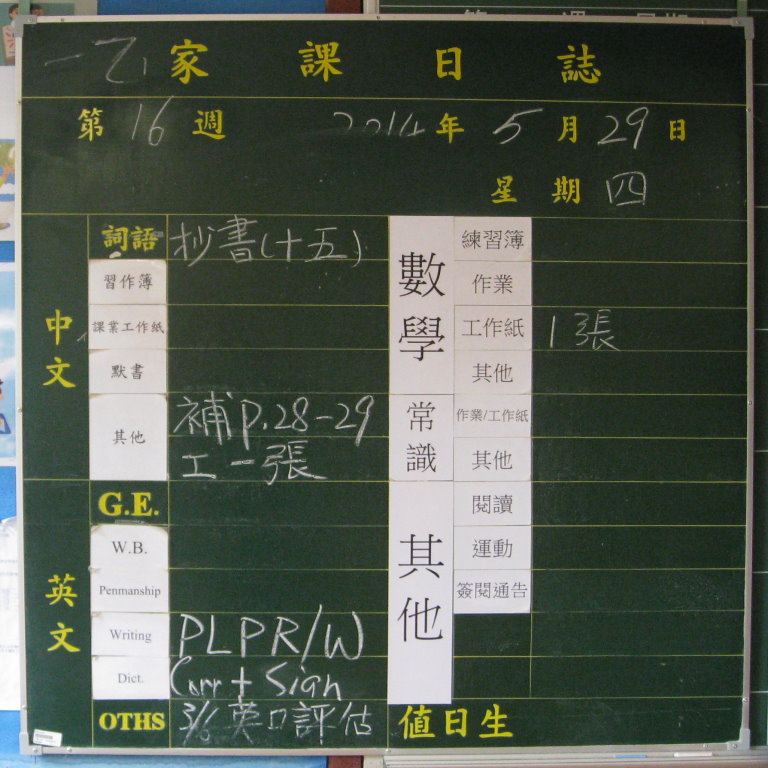 一乙 家課日誌
第16週 2014年5月29日
星期四
中文
詞語 抄書(十五)
習作簿
課業工作紙
默書
其他 補p.28-29
工一張
英文
G.E.
W.B.
Penmanship
Writing PLPR/W
Dict. Corr + Sign
OTHS 3/6 英口評估
數學
練習簿
作業
工作紙 1張
其他
常識
作業/工作紙
其他
其他
閱讀
運動
簽閱通告
值日生